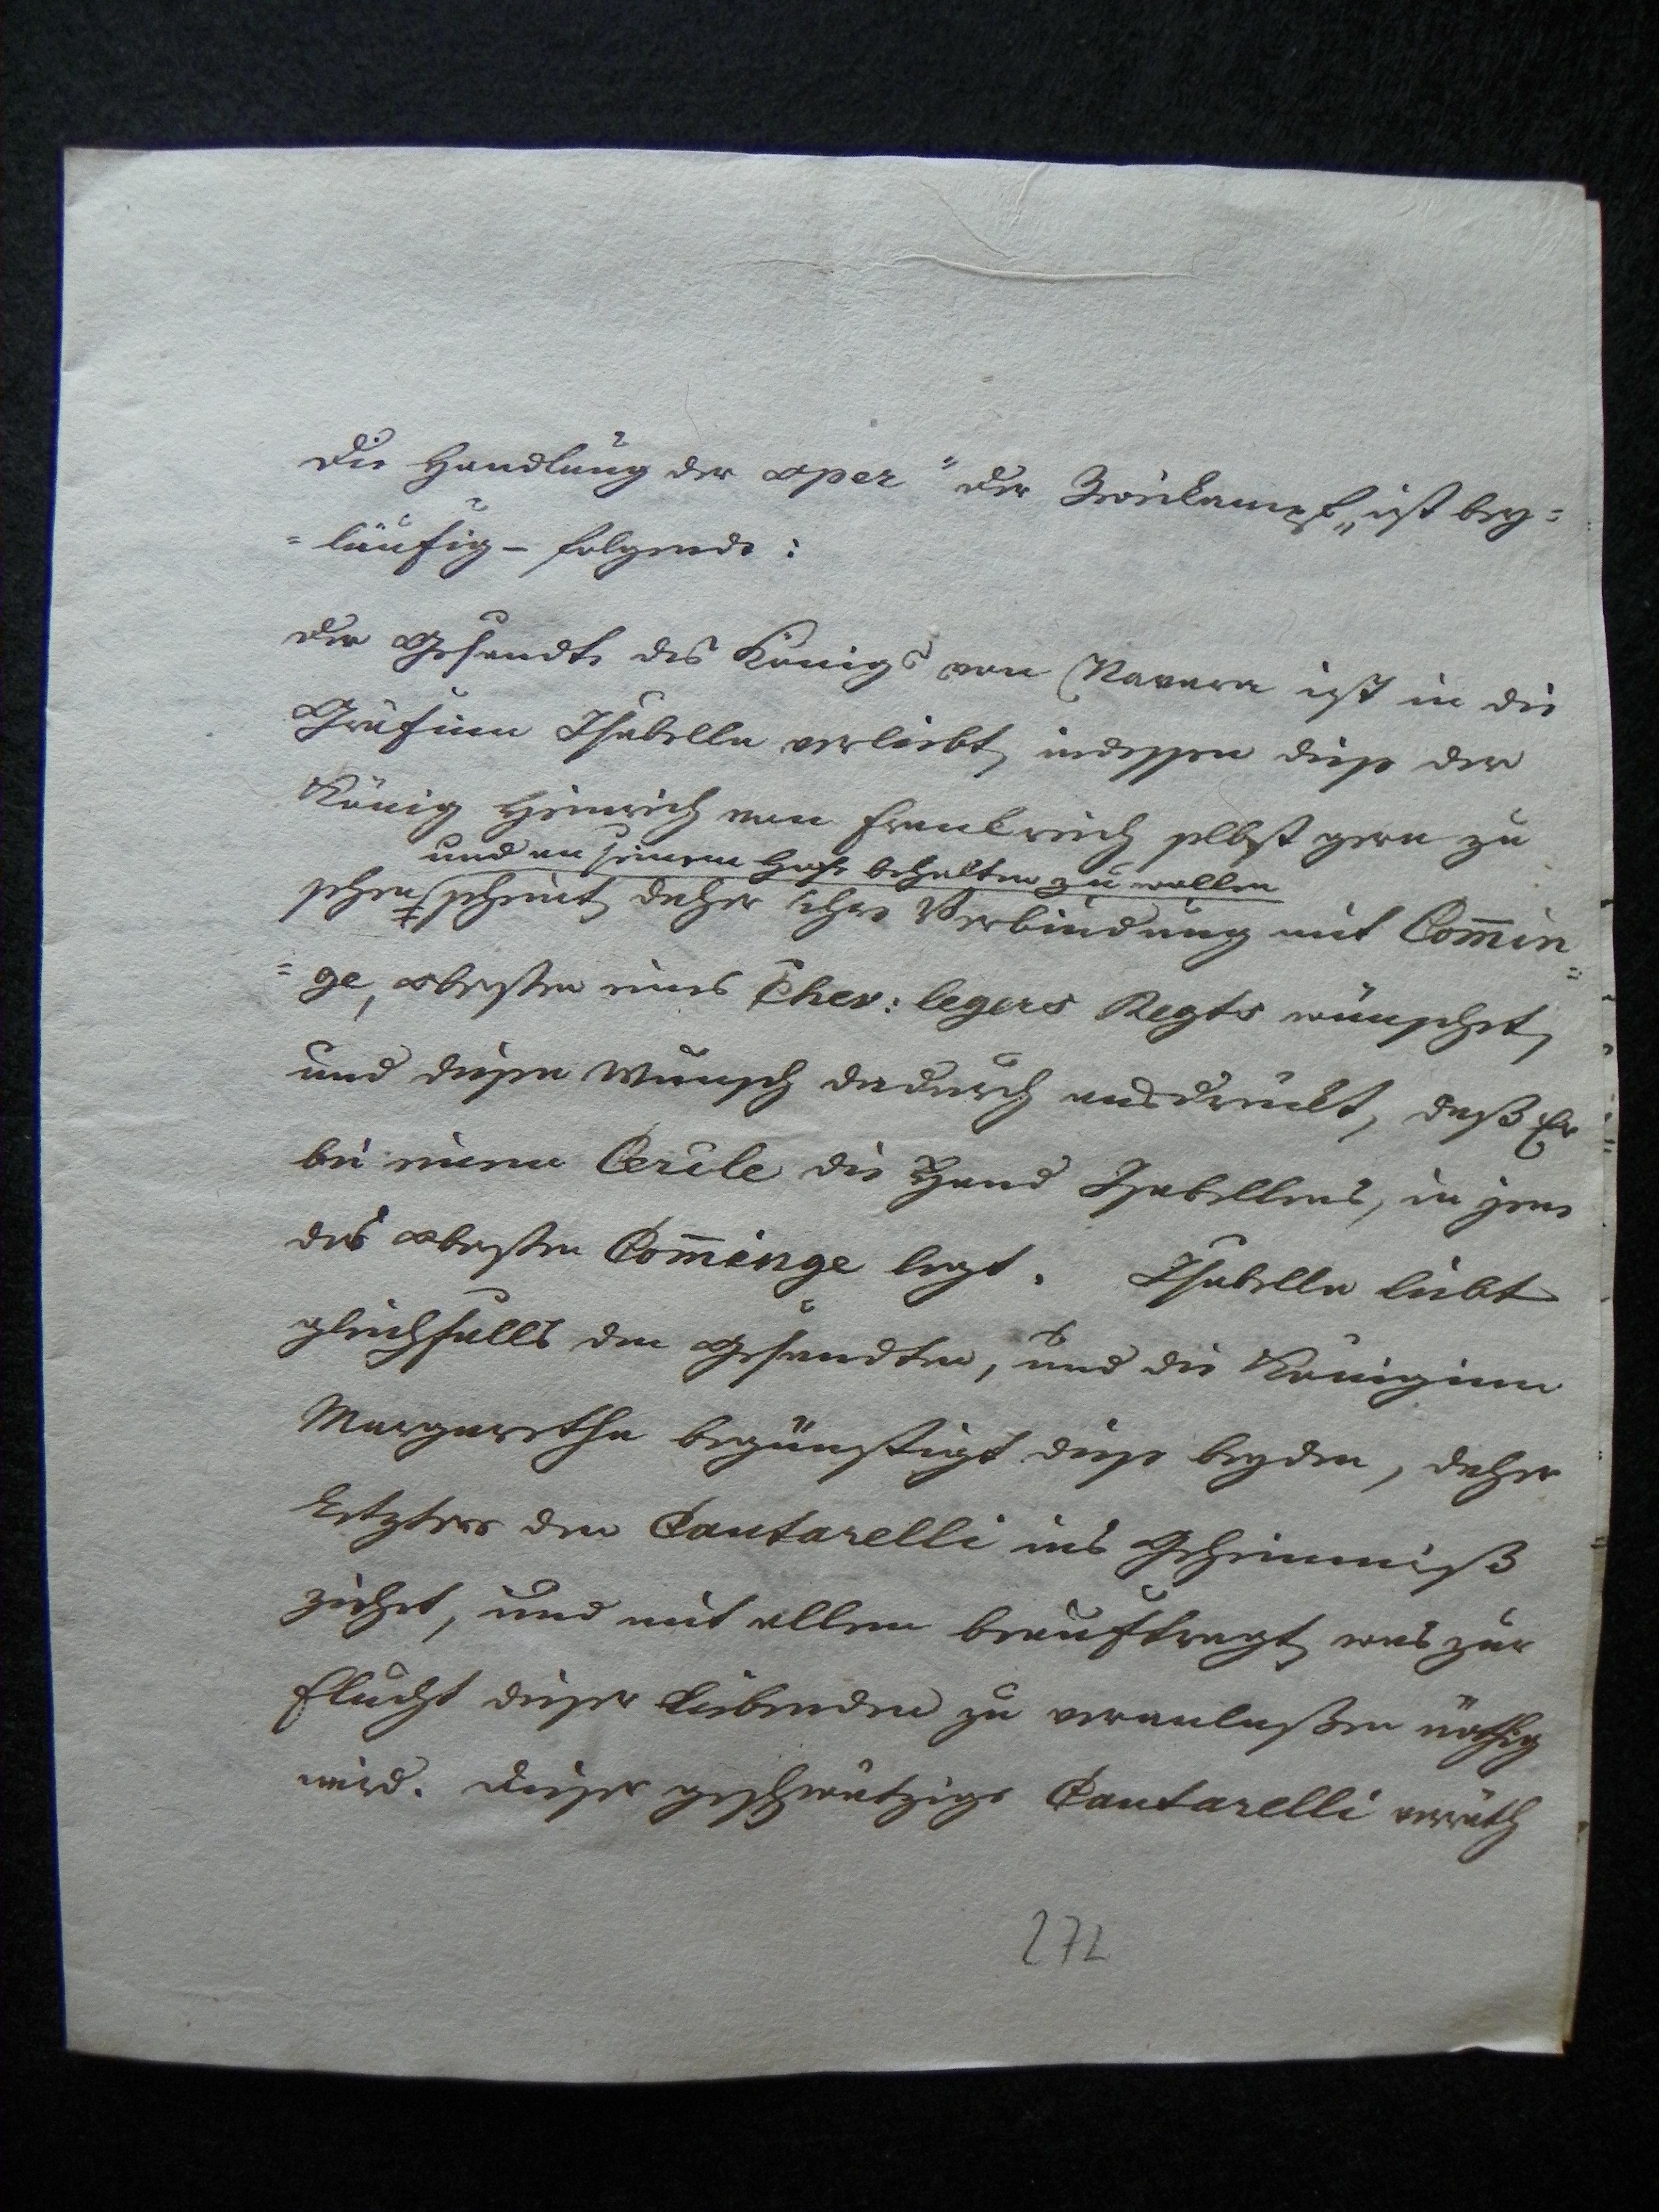 Die Handlung der Oper "der Zweikampf„ ist bey=
=läufig – folgende:
Der Gesandte des Königs von Navara ist in die
Gräfinn Isabella verliebt, indessen diese der
König Heinrich von Frankreich selbst gern zu
und an seinem Hofe behalten zu wollen
sehen scheint, daher ihre Verbindung mit Com̅in=
=ge, Obersten eines Chev: legers Regts wünschet,
und diesen Wunsch dadurch ausdrückt, daß Er
bei einem Cercle die Hand Isabellens, in jene
des Obersten Com̅inge legt. Isabella liebt
gleichfalls den Gesandten, und die Königinn
Margaretha begünstigt diese beyden, daher
Letztere den Cantarelli in's Geheimniß
ziehet, und mit allem beauftragt, was zur
Flucht dieser Liebenden zu veranlaßen nöthig
wird. Dieser geschwätzige Cantarelli verräth
272